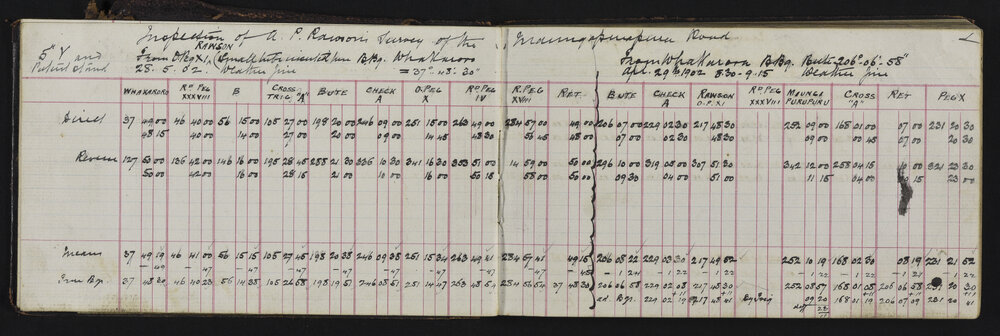 Inspection of A. P. Rawson's Survey of the Maungapurupuru Road
5" V and
Patent stand
RAWSON
28. 5. 02. Weather fine
= 37° 48' 30"
From Whakaroro Brg. Bute 206°-06'-58"
Apr. 29th 1902 8.30-9.15 Weather fine
WHAKARORO Rd PEG XXXVIII B CROSS TRIG. "A" BUTE CHECK A O.PEG X Rd PEG IV Rd PEG XVIII RET. BUTE CHECK A RAWSON O.P. XI Rd PEG XXXVIII MAUNGA PURUPURU CROSS "A" RET PEG X
Direct 37 49 00 46 40 00 56 15 00 105 27 00 198 20 00 246 09 00 251 15 00 263 49 00 284 57 00 49 00 206 07 00 229 02 30 217 48 30 252 09 00 168 01 00 07 00 231 20 30
48 15 40 00 14 00 27 00 20 00 09 00 14 45 48 30 56 45 48 00 07 00 02 30 48 30 09 00 00 45 07 00 20 30
Reverse 127 50 00 136 42 00 146 16 00 195 28 45 288 21 30 336 10 30 341 16 30 353 51 00 14 59 00 50 00 296 10 00 319 05 00 307 51 30 342 12 00 258 04 15 10 00 321 23 30
50 00 42 00 16 00 28 15 21 00 10 00 16 00 50 15 58 00 50 00 09 30 04 00 51 00 11 15 04 00 15 23 00
Means 37 49 19 46 41 00 56 15 15 105 27 45 198 20 38 246 09 38 251 15 34 263 49 41 284 57 41 49 15 206 08 22 229 03 30 217 49 52 252 10 19 168 02 30 08 19 231 21 52
— 49 — 47 — 47 — 47 — 47 — 47 — 45 — 1 24 — 1 22 — 1 22 — 1 22 — 1 22 — 1 22
True Brgs. 37 48 30 46 40 23 56 14 38 105 26 58 198 19 51 246 08 51 251 14 47 263 48 54 284 56 54 37 48 30 206 06 58 229 02 08 217 48 30 252 08 57 168 01 08 206 06 58 231 20 30
ad. Brgs. 229 02 19 217 48 41 09 20 168 01 19 206 07 09 231 20 41